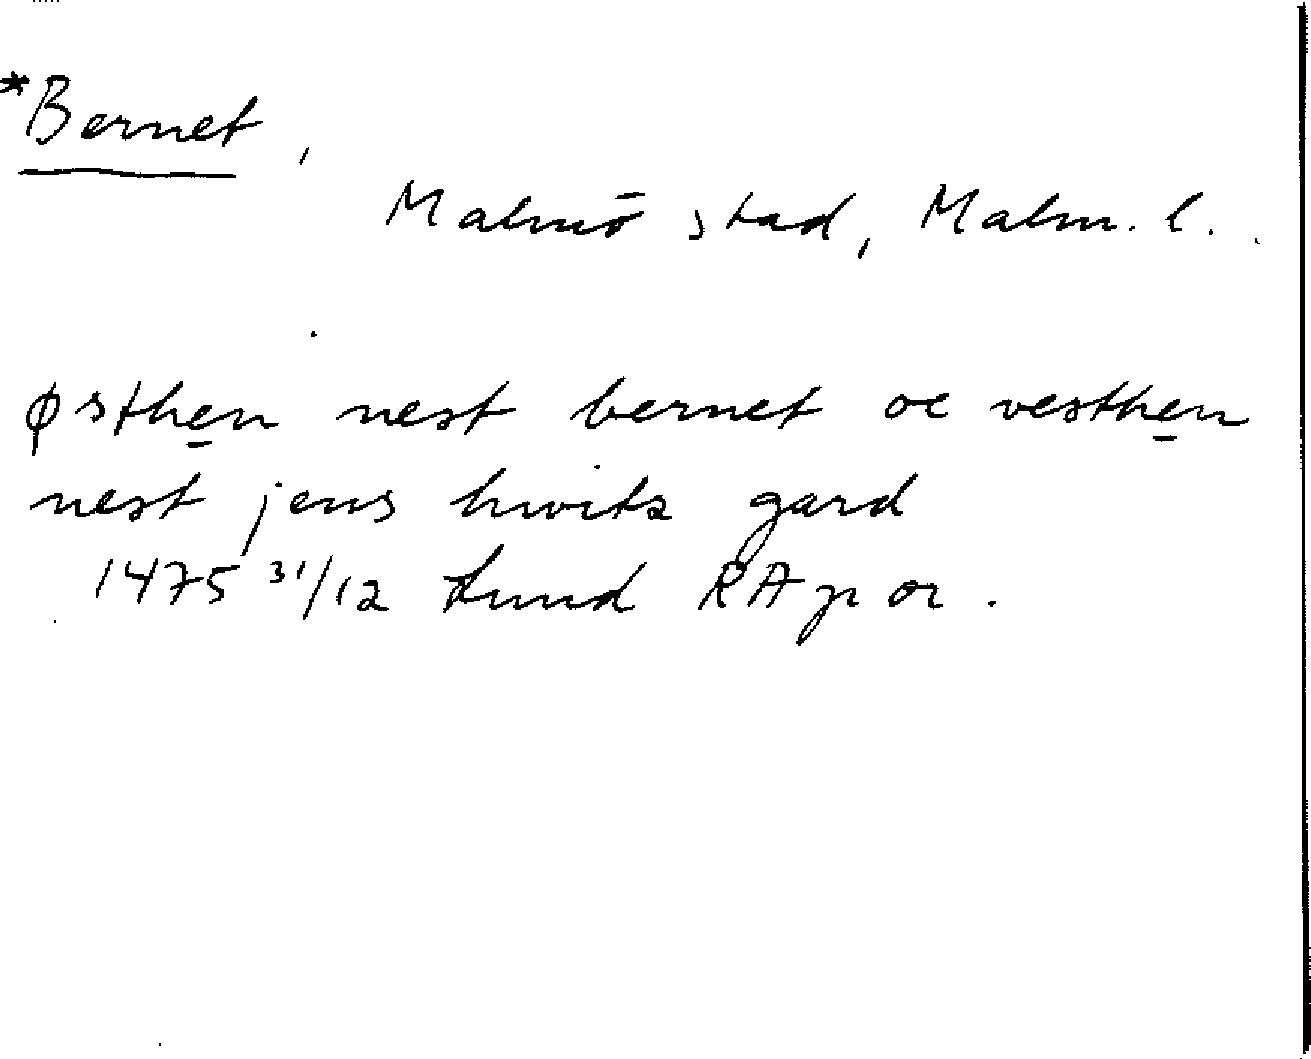 *Bernet,
Malmö stad, Malm. l.
østhen nest bernet oc vesthen
nest jens hwitz gard
1475 31/12 Lund RA p or.